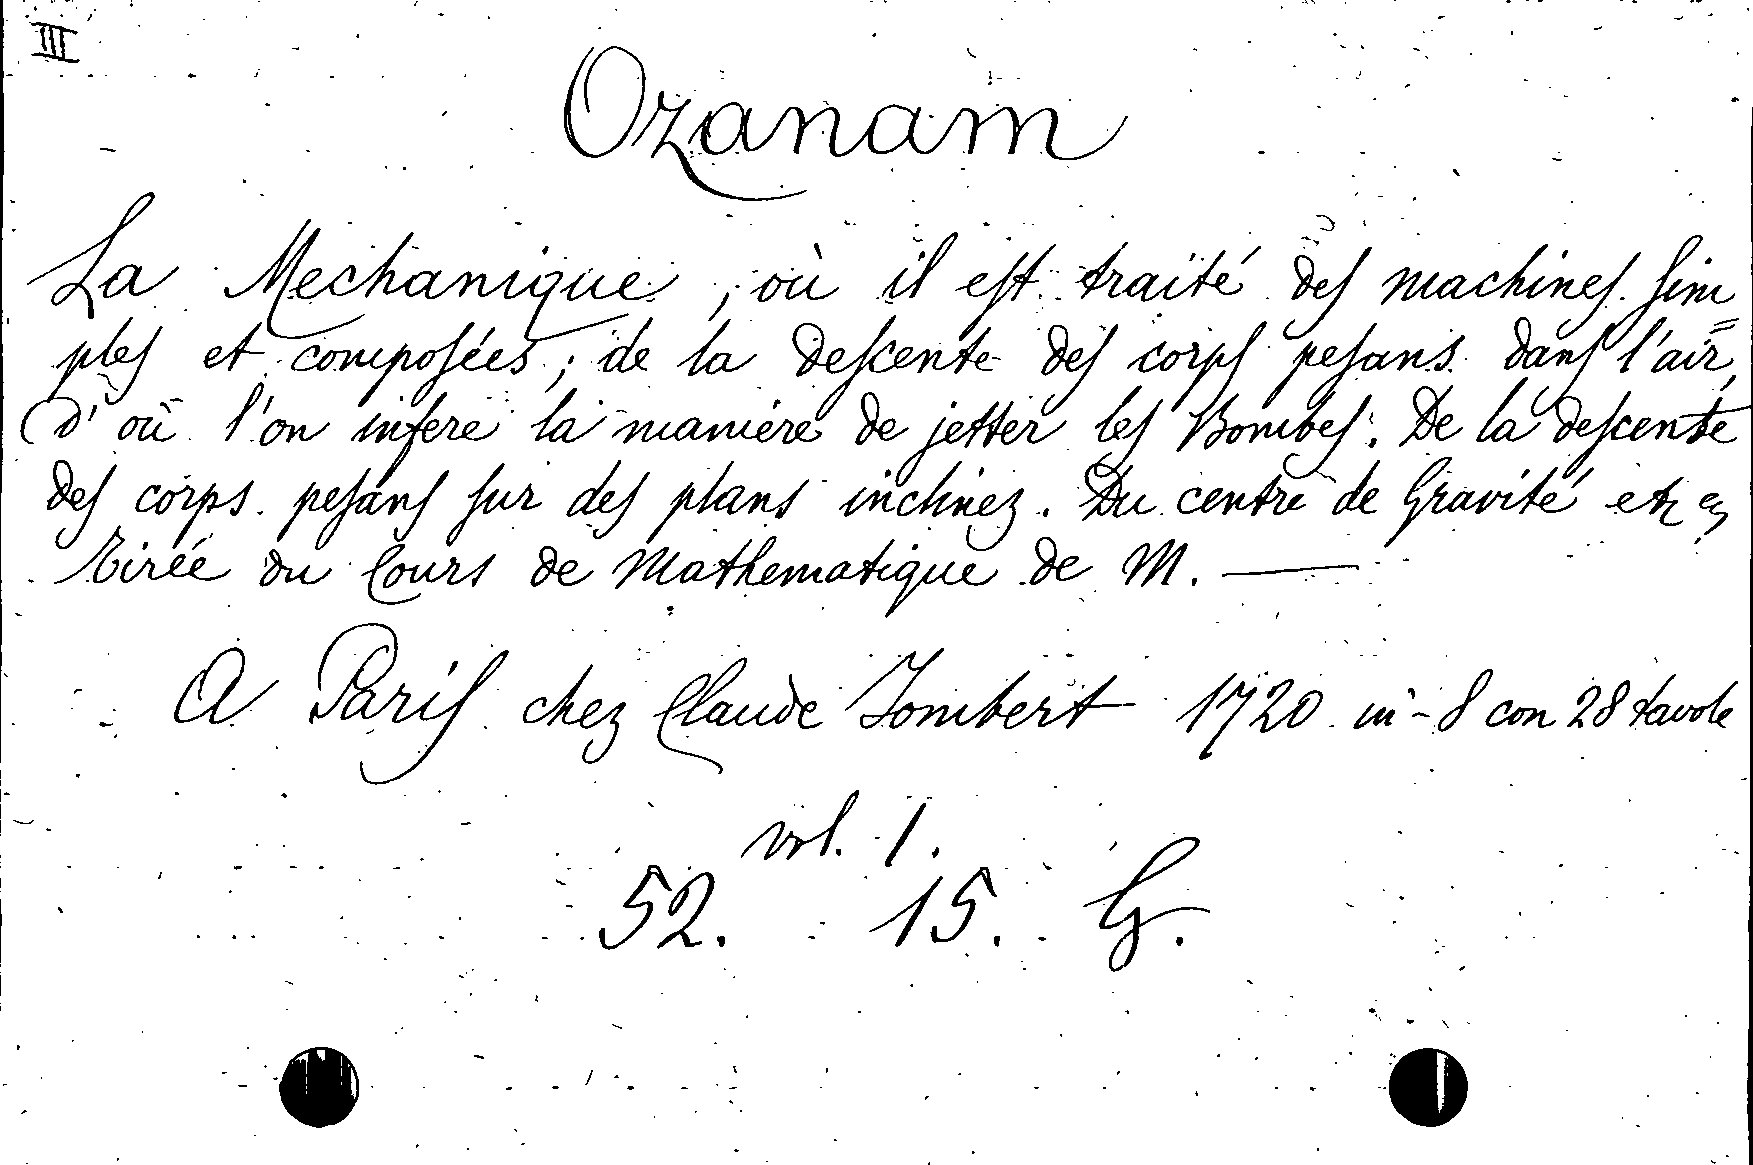 III
Ozanam
La Mechanique, où il est traité des machines sim=
ples et composées; de la descente des corps pesans dans l'air,
d'où l'on infere la maniere de jetter les Bombes. De la descente
des corps pesans sur des plans inclinez. Du centre de Gravité etc
tirée du Cours de Mathematique de M. —
A Paris chez Claude Jombert 1720 in-8 con 28 tavole
vol. 1.
52. 15. G.